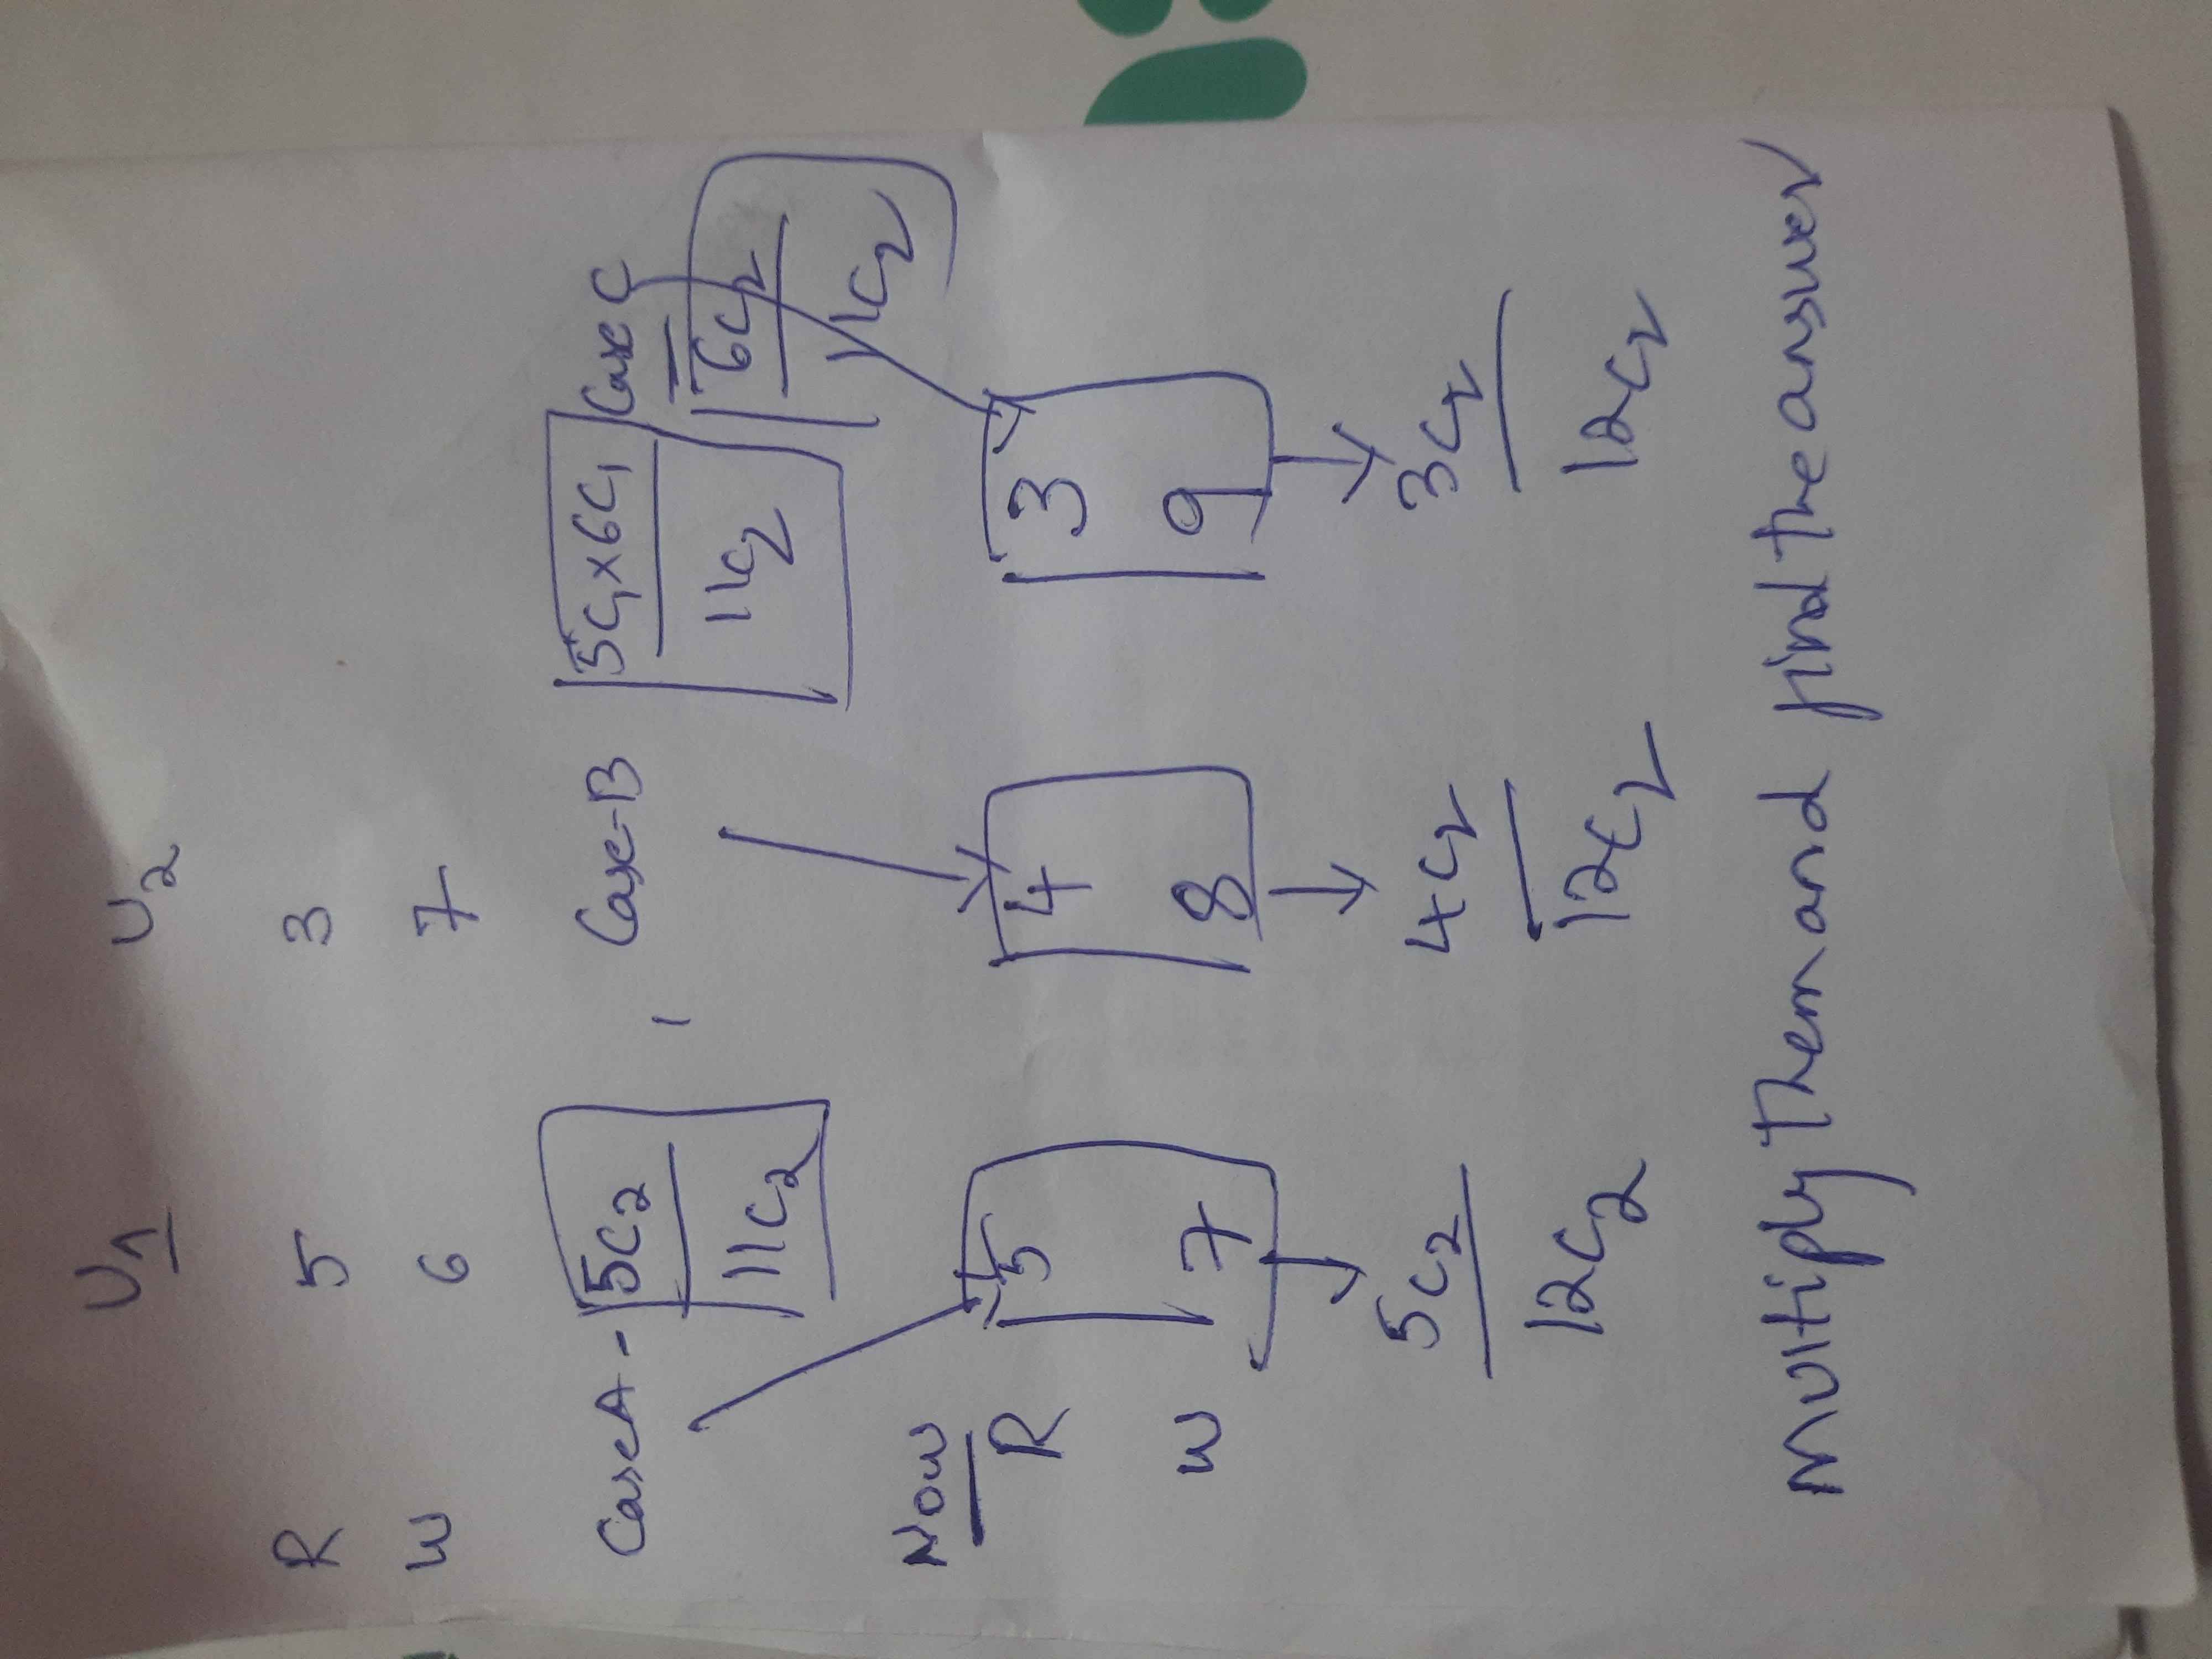 U1 U2
R 5 3
W 6 7
Case A - 5C2 , Case-B 5C1x6C1 Case C 6C2
11C2 11C2 11C2
Now
R 5 4 3
W 7 8 9
5C2 4C2 3C2
12C2 12C2 12C2
multiply them and find the answer